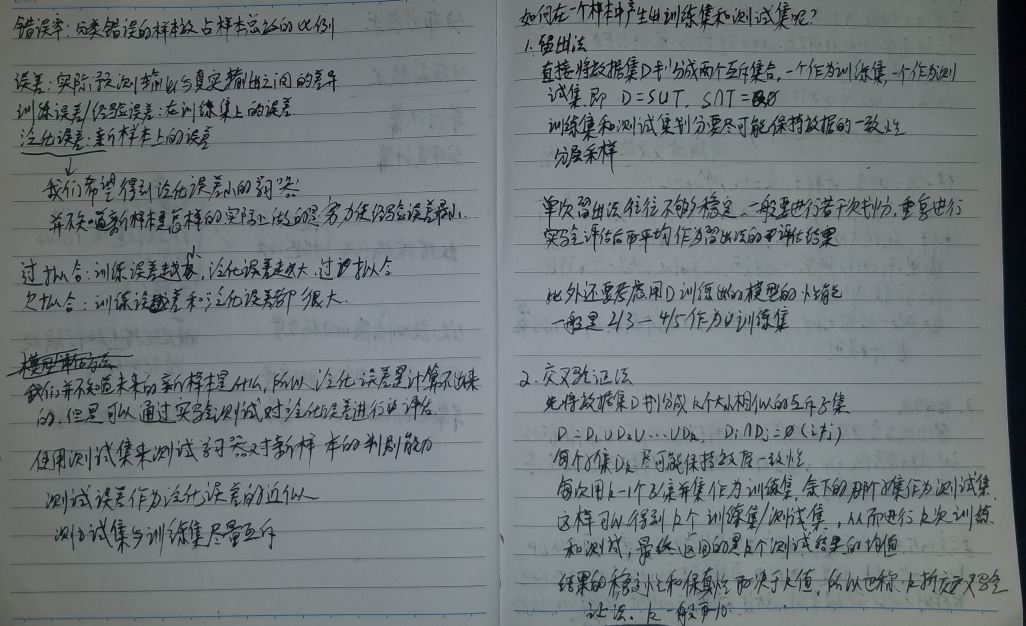 错误率：分类错误的样本数占样本总数的比例
误差：实际预测输出与真实输出之间的差异
训练误差/经验误差：在训练集上的误差
泛化误差：新样本上的误差
我们希望得到泛化误差小的学习器
并不知道新样本是怎样的实际上做的是努力使经验误差最小.
过拟合：训练误差越小，泛化误差越大，过拟合
欠拟合：训练误差和泛化误差都很大.
模型评估方法
我们并不知道未来的新样本是什么，所以泛化误差是计算不出来
的，但是可以通过实验测试对泛化误差进行评估.
使用测试集来测试学习器对新样本的判别能力
测试误差作为泛化误差的近似
测试集与训练集尽量互斥
如何在一个样本中产生出训练集和测试集呢？
1. 留出法
直接将数据集D划分成两个互斥集合，一个作为训练集，一个作为测
试集，即 D=S∪T, S∩T=∅
训练集和测试集划分要尽可能保持数据的一致性
分层采样
单次留出法往往不够稳定，一般要进行若干次划分，重复进行
实验评估后平均作为留出法的评估结果
此外还要考虑用D训练出的模型的性能
一般是 2/3 — 4/5 作为训练集
2. 交叉验证法
先将数据集D划分成k个大小相似的互斥子集
D = D₁∪D₂∪…∪Dₖ, Dᵢ∩Dⱼ=∅ (i≠j)
每个子集Dₖ尽可能保持数据一致性
每次用k-1个子集并集作为训练集，余下的那个子集作为测试集.
这样可以得到k个训练集/测试集，从而进行k次训练
和测试，最终返回的是k个测试结果的均值
结果的稳定性和保真性取决于k值，所以也称k折交叉验
证法. k一般取10